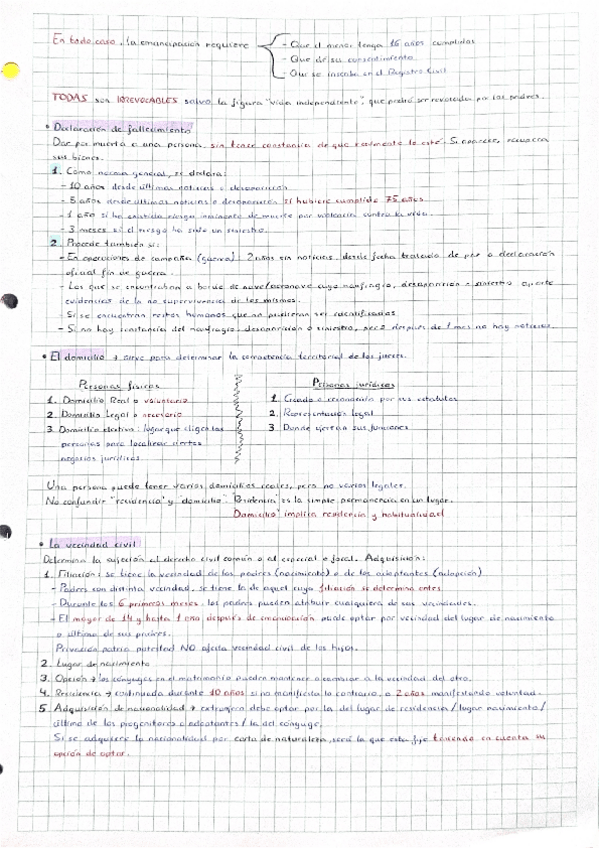 En todo caso, la emancipación requiere
- Que el menor tenga 16 años cumplidos
- Que de su consentimiento
- Que se inscriba en el Registro Civil
TODAS son IRREVOCABLES salvo la figura "vida independiente", que podrá ser revocada por los padres.
• Declaración de fallecimiento
Dar por muerta a una persona, sin tener constancia de que realmente lo esté. Si aparece, recupera
sus bienes.
1. Como norma general, se declara:
- 10 años desde últimas noticias o desaparición
- 5 años desde últimas noticias o desaparición si hubiere cumplido 75 años
- 1 año si ha existido riesgo inminente de muerte por violencia contra la vida.
- 3 meses si el riesgo ha sido un siniestro.
2. Procede también si:
- En operaciones de campaña (guerra): 2 años sin noticias, desde fecha tratado de paz o declaración
oficial fin de guerra.
- Los que se encontraban a bordo de nave/aeronave cuyo naufragio, desaparición o siniestro aporte
evidencias de la no supervivencia de los mismos.
- Si se encuentran restos humanos que no pudieran ser identificados
- Si no hay constancia del naufragio, desaparición o siniestro, después de 1 mes no hay noticias.
• El domicilio → sirve para determinar la competencia territorial de los jueces.
Personas físicas
1. Domicilio Real o voluntario
2. Domicilio Legal o necesario
3. Domicilio electivo: lugar que eligen las
personas para localizar ciertos
negocios jurídicos.
Personas jurídicas
1. Creado o reconocido por sus estatutos
2. Representación legal
3. Donde ejerzan sus funciones
Una persona puede tener varios domicilios reales, pero no varios legales.
No confundir "residencia" y "domicilio". "Residencia" es la simple permanencia en un lugar.
"Domicilio" implica residencia y habitualidad
• La vecindad civil
Determina la sujeción al derecho civil común o al especial o foral. Adquisición:
1. Filiación: se tiene la vecindad de los padres (nacimiento) o de los adoptantes (adopción)
- Padres con distinta vecindad, se tiene la de aquel cuya filiación se determine antes
- Durante los 6 primeros meses, los padres pueden atribuir cualquiera de sus vecindades.
- El mayor de 14 y hasta 1 año después de emancipación puede optar por vecindad del lugar de nacimiento
o última de sus padres.
Privación patria potestad NO afecta vecindad civil de los hijos.
2. Lugar de nacimiento
3. Opción → los cónyuges en el matrimonio pueden mantener o cambiar a la vecindad del otro.
4. Residencia → continuada durante 10 años si no manifiesta lo contrario, o 2 años manifestando voluntad.
5. Adquisición de nacionalidad → extranjero debe optar por la del lugar de residencia / lugar nacimiento /
última de los progenitores o adoptantes / la del cónyuge.
Si se adquiere la nacionalidad por carta de naturaleza, será la que esta fije teniendo en cuenta su
opción de optar.